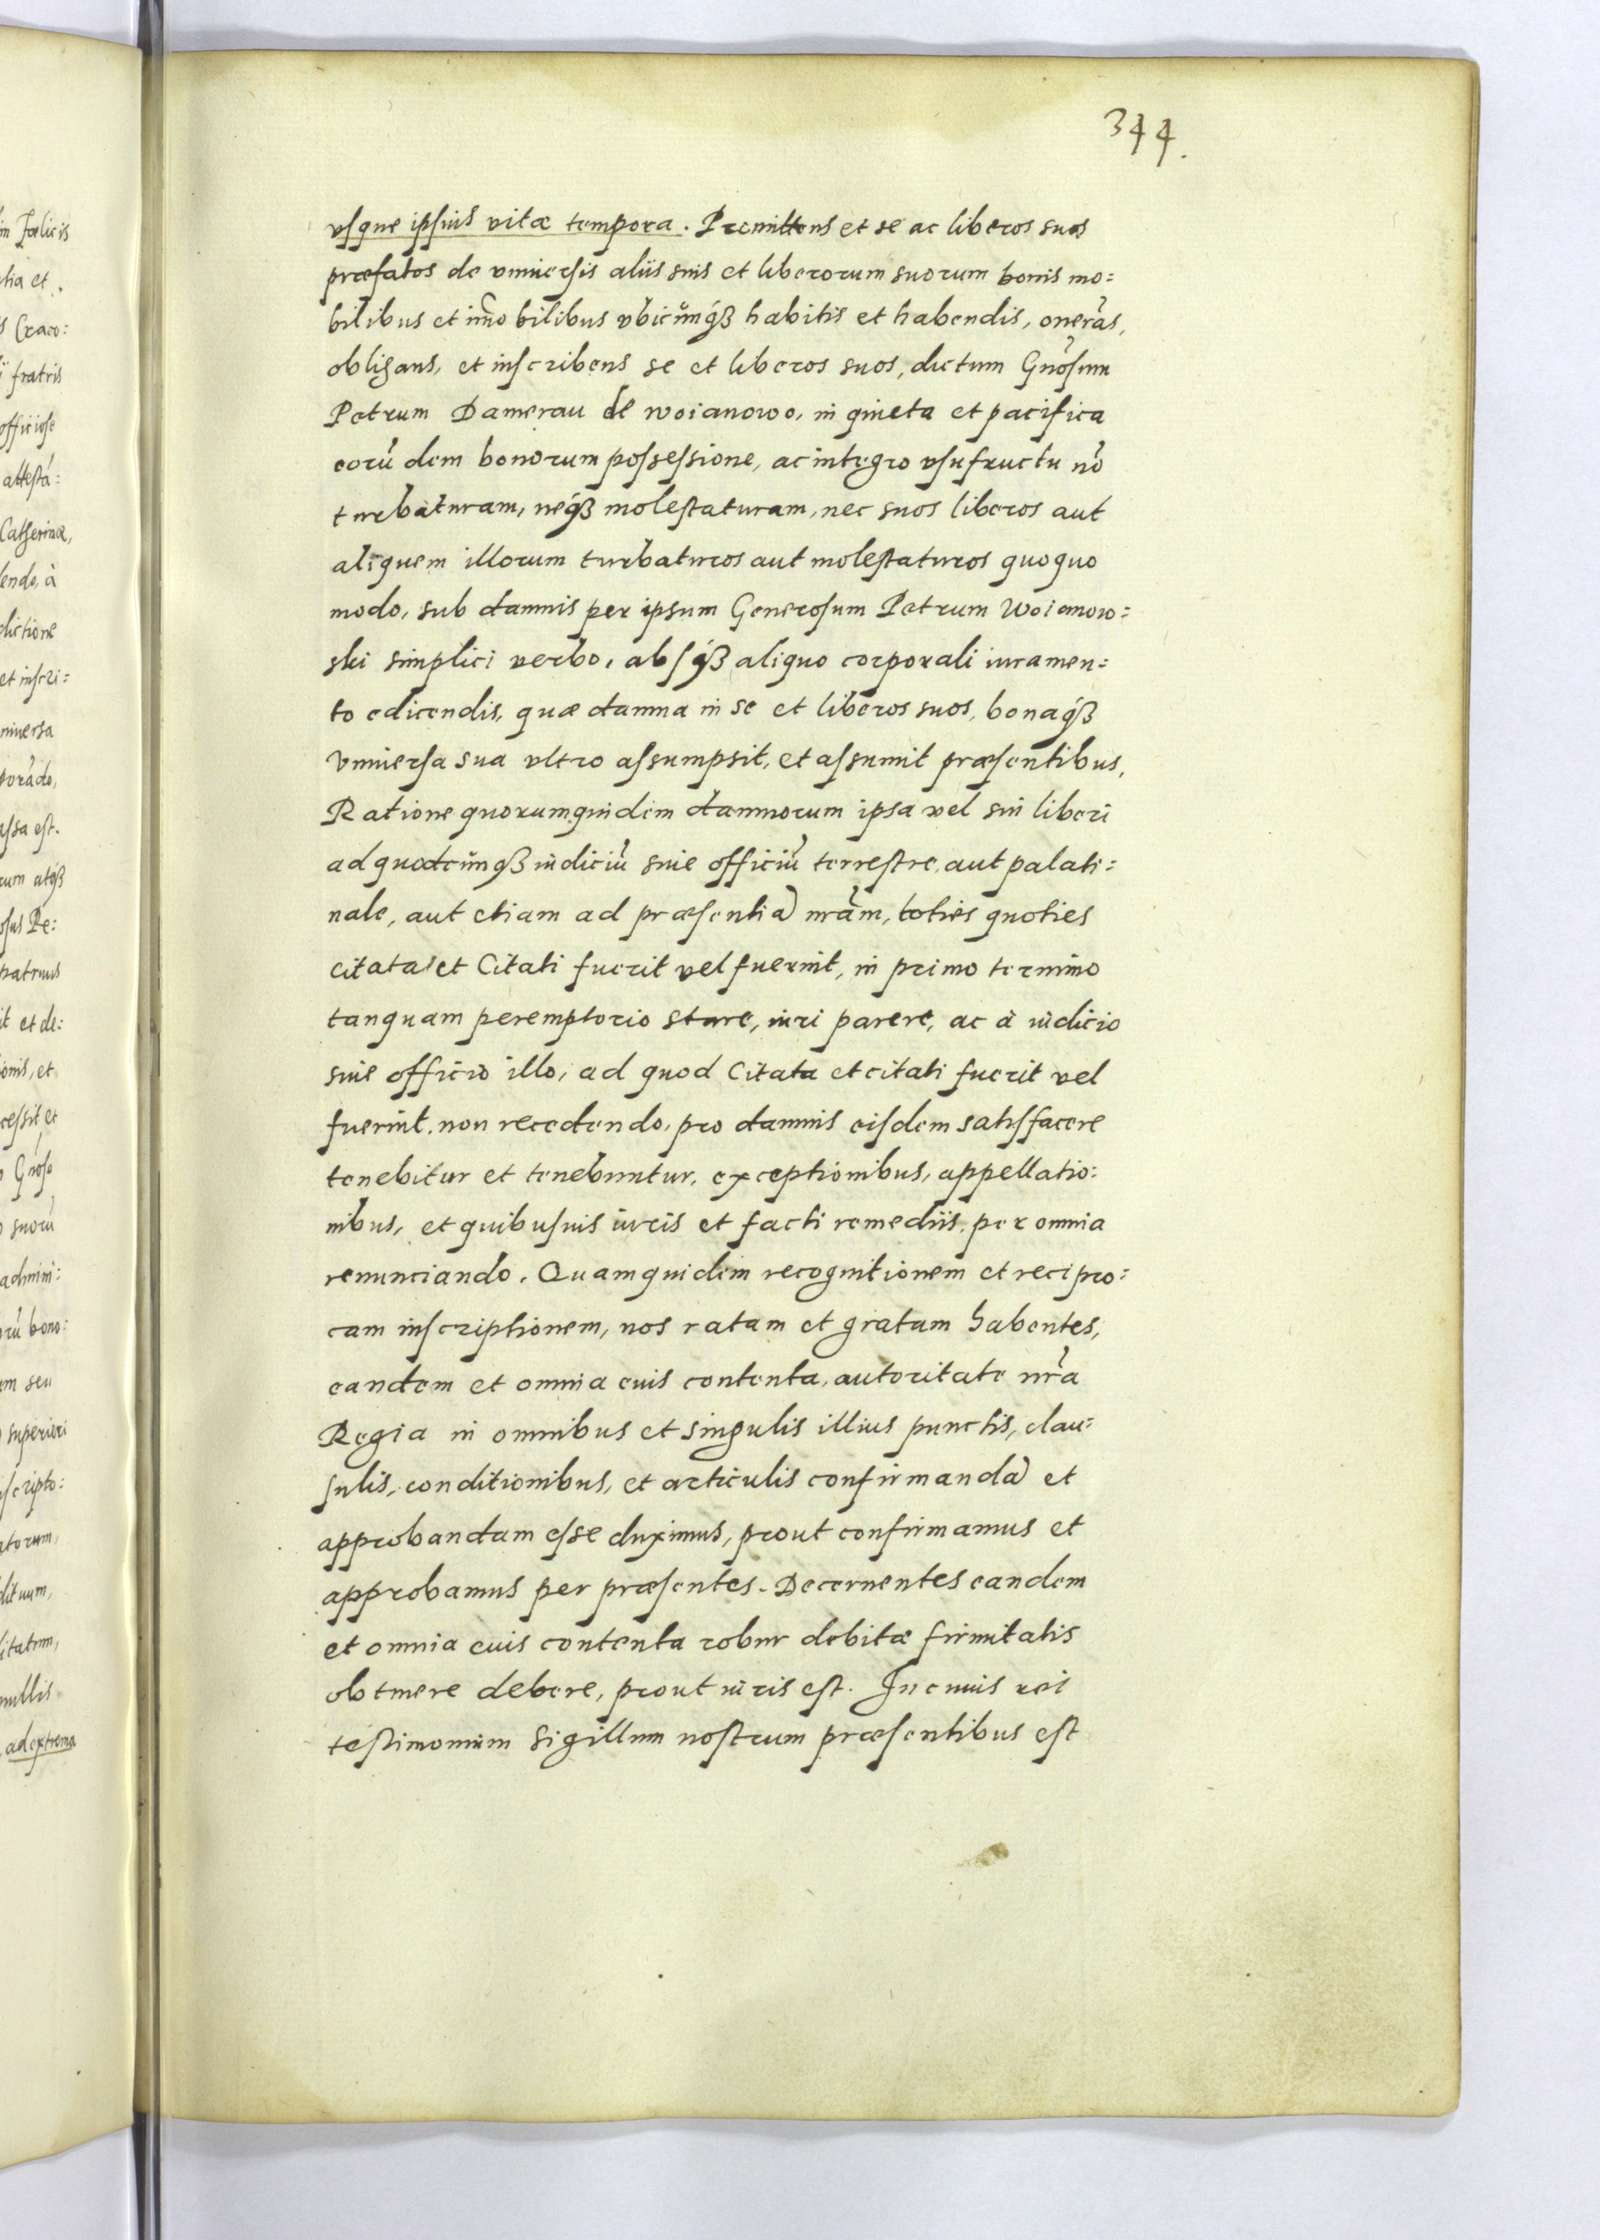 344.
vsque ipsius vitæ tempora. Promittens et se ac liberos suos
præfatos de vniuersis aliis suis et liberorum suorum bonis mo=
bilibus et im̃obilibus vbicũnqꝫ habitis et habendis, onerãs,
obligans, et inscribens se et liberos suos, dictum Gnõsum
Petrum Damerau de Woianowo, in quieta et pacifica
eorũdem bonorum possessione, ac integro vsufructu nõ
turbaturam, neqꝫ molestaturam, nec suos liberos aut
aliquem illorum turbaturos aut molestaturos quoquo
modo, sub damnis per ipsum Generosum Petrum Woianow=
ski simplici verbo, absqꝫ aliquo corporali iuramen=
to edicendis, quæ damna in se et liberos suos, bonaqꝫ
vniuersa sua vltro assumpsit, et assumit præsentibus,
Ratione quorumquidem damnorum ipsa vel sui liberi
ad quodcũnqꝫ iudiciũ siue officiũ terrestre, aut palati=
nale, aut etiam ad præsentiã nrãm, toties quoties
citata et Citati fuerit vel fuerint, in primo termino
tanquam peremptorio stare, iuri parere, ac à iudicio
siue officio illo, ad quod Citata et citati fuerit vel
fuerint, non recedendo, pro damnis eisdem satisfacere
tenebitur et tenebuntur, exceptionibus, appellatio:
nibus, et quibusuis iuris et facti remediis, per omnia
renunciando. Quamquidem recognitionem et recipro:
cam inscriptionem, nos ratam et gratam habentes,
eandem et omnia eius contenta, autoritate nrã
Regia in omnibus et singulis illius punctis, clau=
sulis, conditionibus, et articulis confirmandã et
approbandam esse duximus, prout confirmamus et
approbamus per præsentes. Decernentes eandem
et omnia euis contenta robur debitæ firmitatis
obtinere debere, prout iuris est. In cuius rei
testimonium Sigillum nostrum præsentibus est